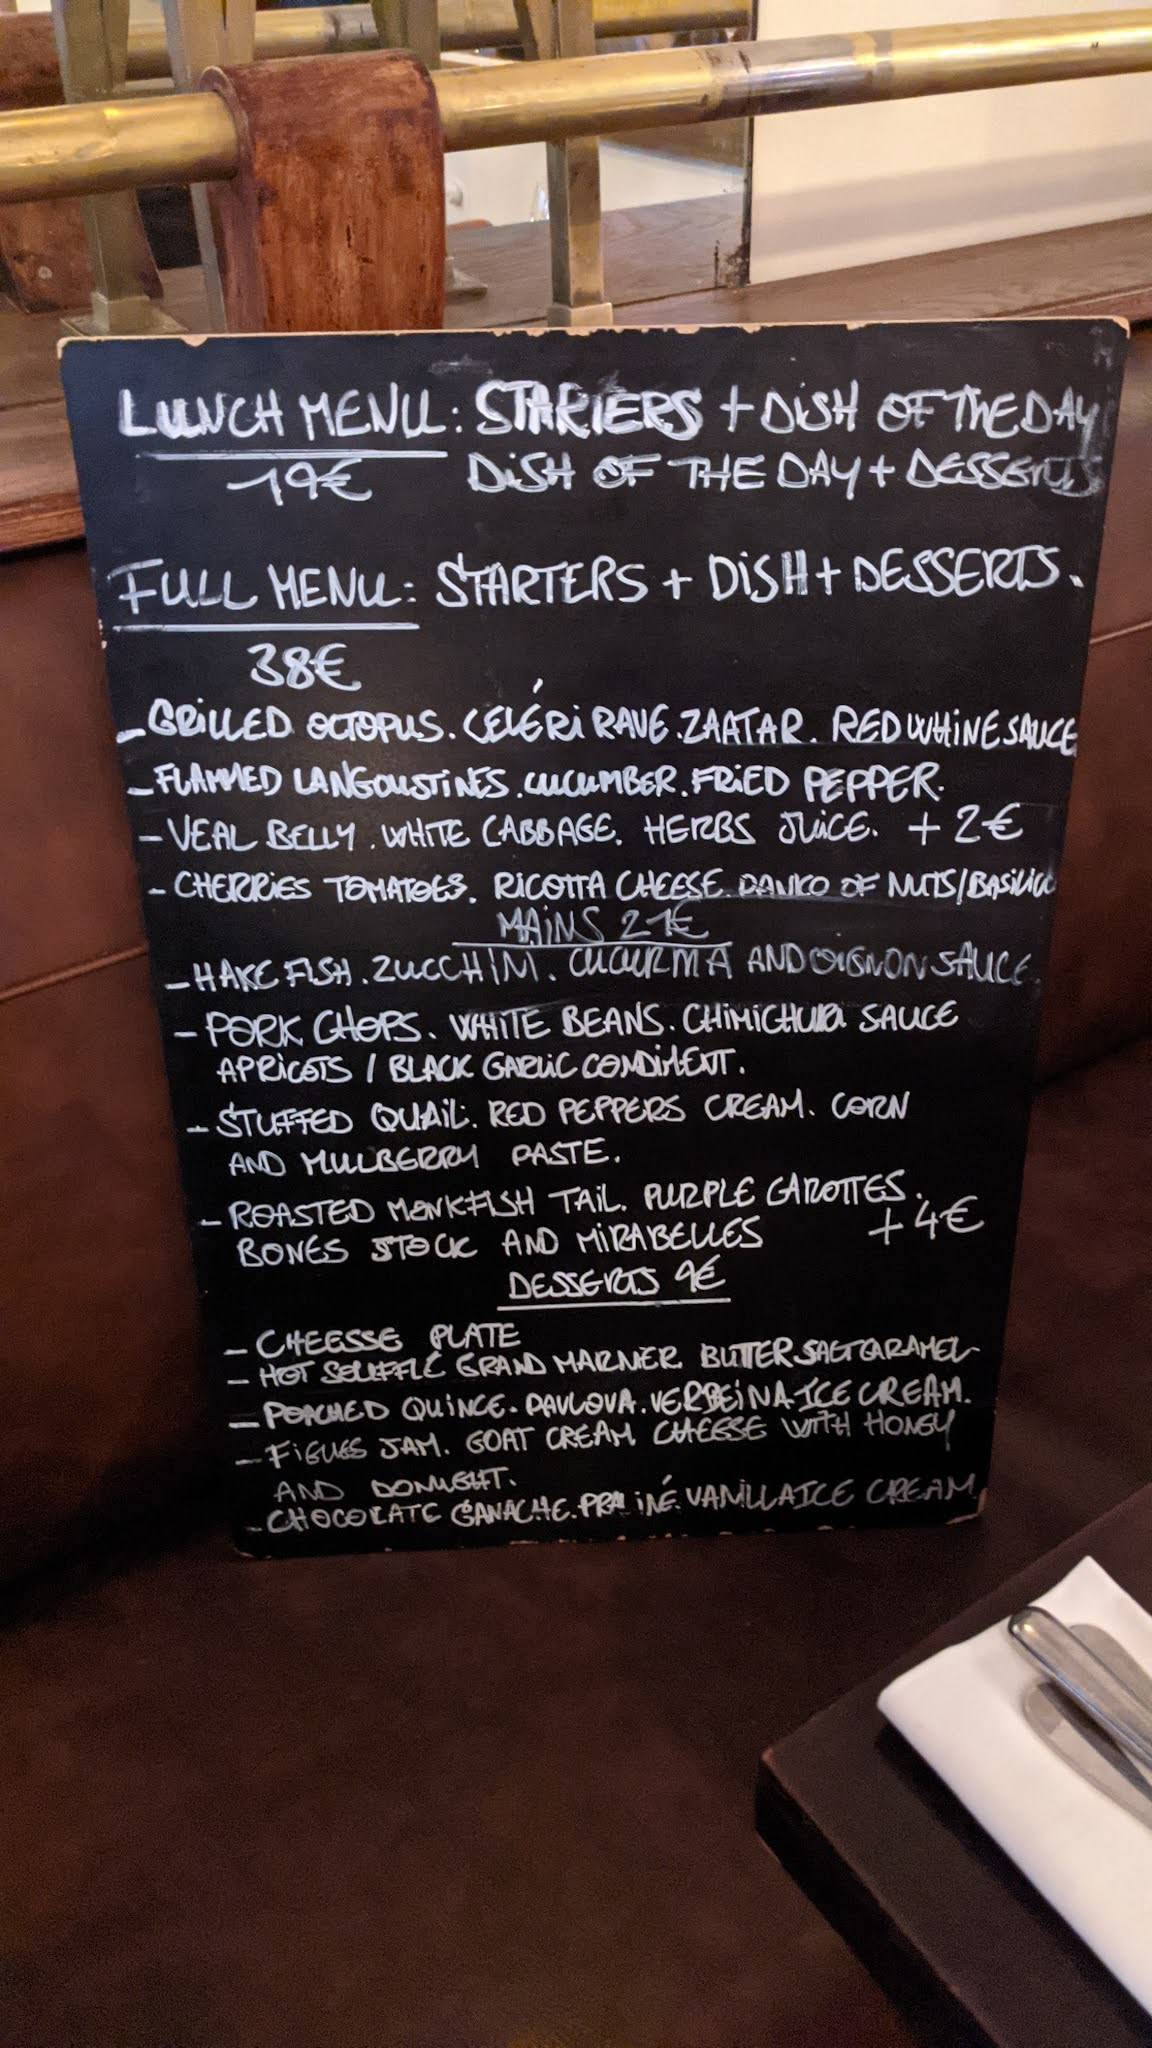 LUNCH MENU: STARTERS + DISH OF THE DAY
19€ DISH OF THE DAY + DESSERTS
FULL MENU: STARTERS + DISH + DESSERTS.
38€
- GRILLED OCTOPUS. CÉLÉRI RAVE. ZAATAR. RED WHINE SAUCE
- FLAMMED LANGOUSTINES. CUCUMBER. FRIED PEPPER.
- VEAL BELLY. WHITE CABBAGE. HERBS JUICE. + 2€
- CHERRIES TOMATOES. RICOTTA CHEESE. PANKO OF NUTS/BASILIC
MAINS 21€
- HAKE FISH. ZUCCHINI. CUCURMA AND OIGNON SAUCE.
- PORK CHOPS. WHITE BEANS. CHIMICHURI SAUCE
APRICOTS / BLACK GARLIC CONDIMENT.
- STUFFED QUAIL. RED PEPPERS CREAM. CORN
AND MULBERRY PASTE.
- ROASTED MONKFISH TAIL. PURPLE CAROTTES.
BONES STOCK AND MIRABELLES + 4€
DESSERTS 9€
- CHEESSE PLATE
- HOT SOUFFLÉ GRAND MARNER. BUTTER SALT CARAMEL
- POACHED QUINCE. PAVLOVA. VERBEINA ICE CREAM.
- FIGUES JAM. GOAT CREAM CHEESE WITH HONEY
AND DONUGHT.
- CHOCOLATE GANACHE. PRALINÉ. VANILLA ICE CREAM.